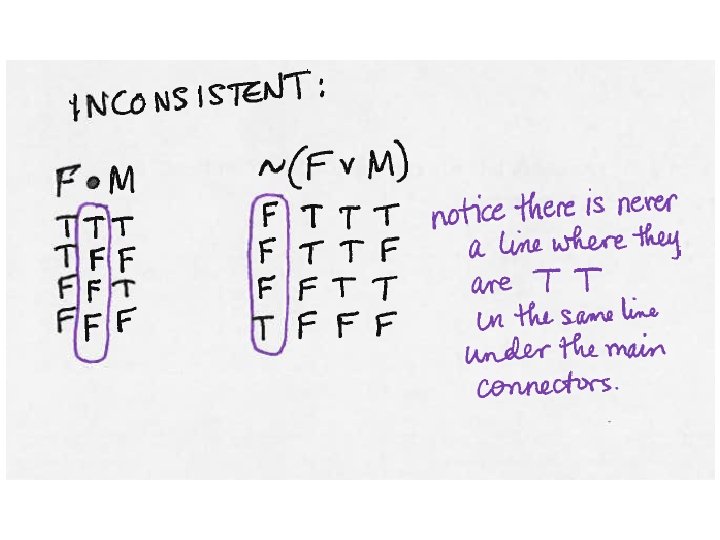 INCONSISTENT:
F • M ~(F v M)
T T T F T T T
T F F F T T F
F F T F F T T
F F F T F F F
notice there is never
a line where they
are T T
in the same line
under the main
connectors.